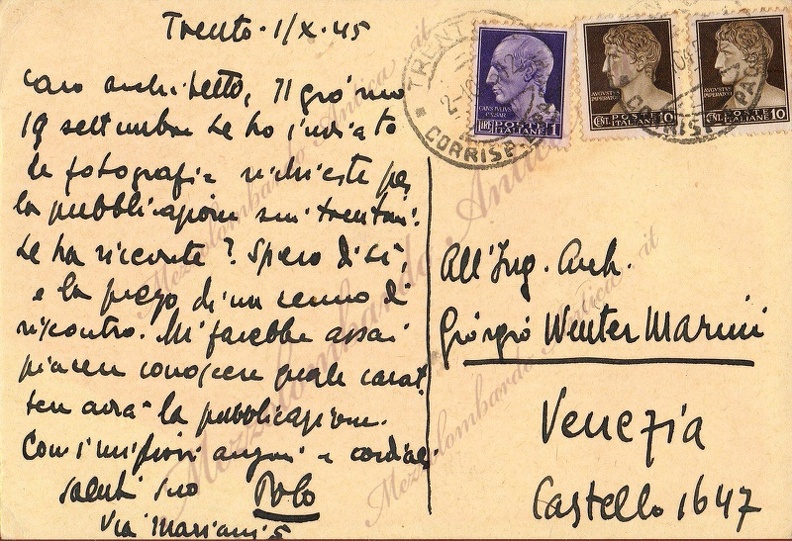 Trento. 1/X. 45
Caro architetto, Il giorno
19 settembre Le ho inviato
le fotografie richieste per
la pubblicazione sui trentini.
Le ha ricevute? Spero di sì,
e La prego di un cenno di
riscontro. Mi farebbe assai
piacere conoscere quale carat
tere avrà la pubblicazione.
Con i migliori auguri e cordiali
saluti suo Polo
Via Mariani 5
All'Ing. Arch.
Giorgio Wenter Marini
Venezia
Castello 1647
TRENTO
CORRISP. PACCHI
CAIVS IVLIVS
CAESAR
LIRE 1 POSTE
ITALIANE
AVGVSTVS
IMPERATOR
CENT. POSTE
ITALIANE 10
AVGVSTVS
IMPERATOR
CENT. POSTE
ITALIANE 10
Mezzolombardo Antica.it
Mezzolombardo Antica.it
Mezzolombardo Antica.it